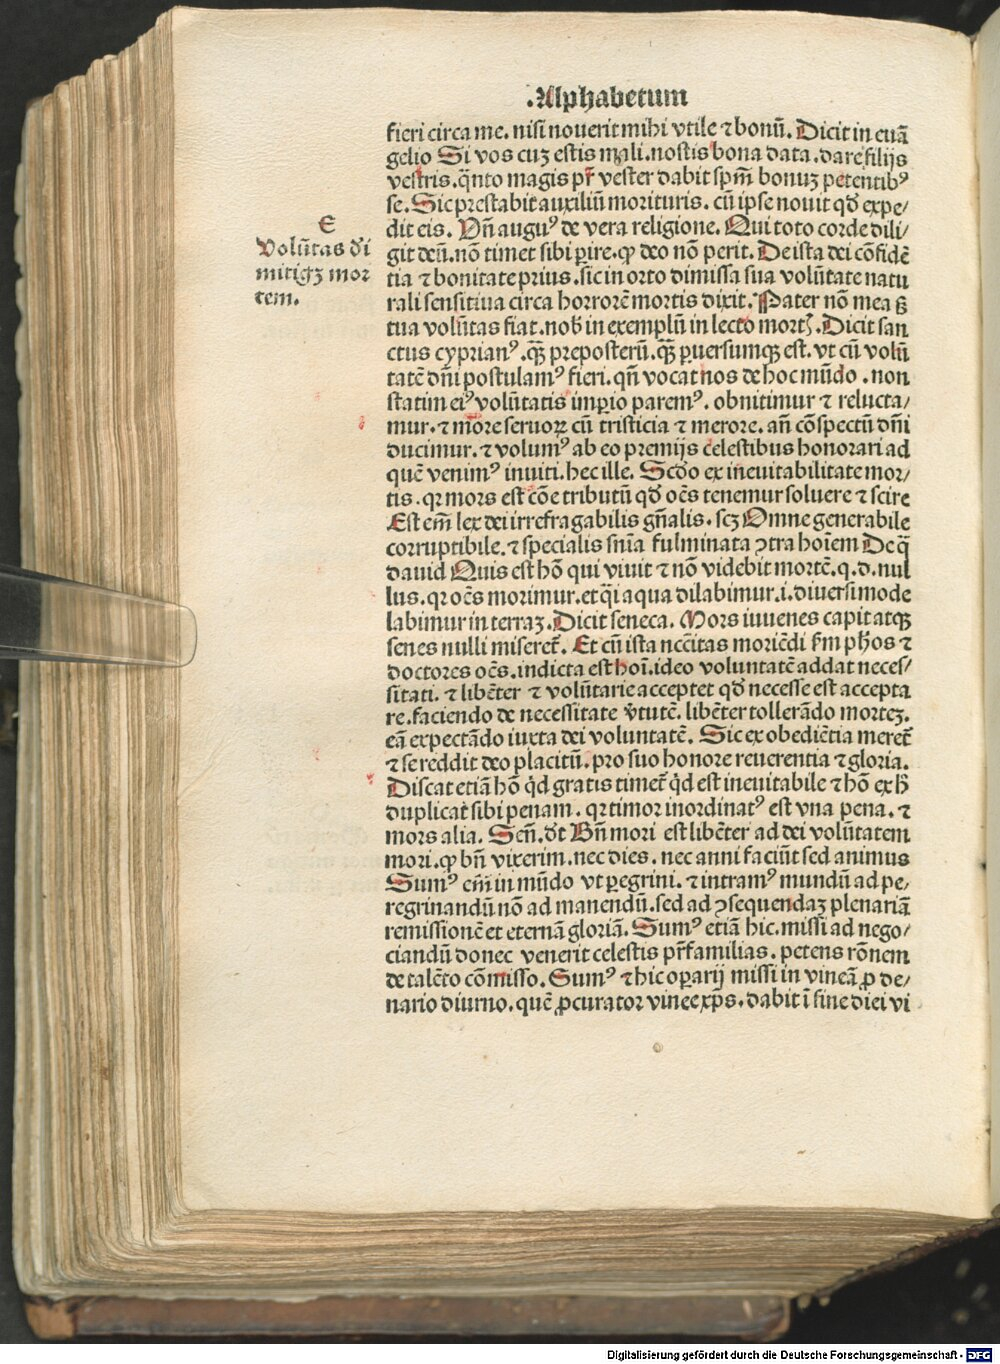 .Alphabetum
fieri circa me. nisi nouerit mihi vtile ⁊ bonū. Dicit in euā
gelio Si vos cuꝫ estis mali. nostis bona data. dare filijs
vestris. q̄nto magis pr̄ vester dabit sp̄m bonuꝫ petentibꝰ
se. Sic prestabit auxiliū morituris. cū ipse nouit qd̓ expe⸗
dit eis. Vn̄ augꝰ de vera religione. Qui toto corde dili⸗
git deū. nō timet sibi ꝑire. qꝛ deo nō perit. De ista dei cōfidē
tia ⁊ bonitate prius. sic in orto dimissa sua volūtate natu
rali sensitiua circa horrorē mortis dixit. Pater nō mea sꝫ
tua volūtas fiat. nob̓ in exemplū in lecto mortꝭ. Dicit san
ctus cyprianꝰ. qꝫ̄ preposterū. qꝫ̄ ꝑuersumqꝫ est. vt cū volū
tatē dn̄i postulamꝰ fieri. qn̄ vocat nos de hoc mūdo . non
statim eiꝰ volūtatis imꝑio paremꝰ. obnitimur ⁊ relucta⸗
mur. ⁊ more seruoꝝ cū tristicia ⁊ merore. an̄ cōspectū dn̄i
ducimur. ⁊ volumꝰ ab eo premijs celestibus honorari ad
quē venimꝰ inuiti. hec ille. Scd̓o ex ineuitabilitate mor⸗
tis. qꝛ mors est cōe tributū qd̓ oēs tenemur soluere ⁊ scire
Est em̄ lex dei irrefragabilis gn̄alis. scꝫ Omne generabile
corruptibile. ⁊ specialis sn̄ia fulminata ↄtra hoīem De q̄
dauid Quis est hō qui viuit ⁊ nō videbit mortē. q. d. nul
lus. qꝛ oēs morimur. et q̄i aqua dilabimur. i. diuersimode
labimur in terraꝫ. Dicit seneca. Mors iuuenes capit atqꝫ
senes nulli miseret̄. Et cū ista nccītas moriēdi km̄ phōs ⁊
doctores oēs. indicta est hoī. ideo voluntatē addat neces⸗
sitati. ⁊ libēter ⁊ volūtarie acceptet qd̓ necesse est accepta
re. faciendo de necessitate v̓tutē. libēter tollerādo morteꝫ.
eā expectādo iuxta dei voluntatē. Sic ex obediētia meret̄
⁊ se reddit deo placitū. pro suo honore reuerentia ⁊ gloria.
Discat etiā hō qd̓ gratis timet̄ qd̓ est ineuitabile ⁊ hō ex h̓
duplicat sibi penam. qꝛ timor inordinatꝰ est vna pena. ⁊
mors alia. Sen̄. d̓t Bn̄ mori est libēter ad dei volūtatem
mori. qꝛ bn̄ vixerim. nec dies. nec anni faciūt sed animus
Sumꝰ em̄ in mūdo vt ꝑegrini. ⁊ intramꝰ mundū ad pe⸗
regrinandū nō ad manendū. sed ad ↄsequendaꝫ plenariā
remissionē et eternā gloriā. Sumꝰ etiā hic. missi ad nego⸗
ciandū donec venerit celestis pr̄familias. petens rōnem
de talēto cōmisso. Sumꝰ ⁊ hic oꝑarij missi in vineā ꝓ de⸗
nario diurno. quē ꝓcurator vinee xp̄s. dabit ī fine diei vi
E
Volūtas d̓i
mitigꝫ mor
tem.
Digitalisierung gefördert durch die Deutsche Forschungsgemeinschaft - DFG